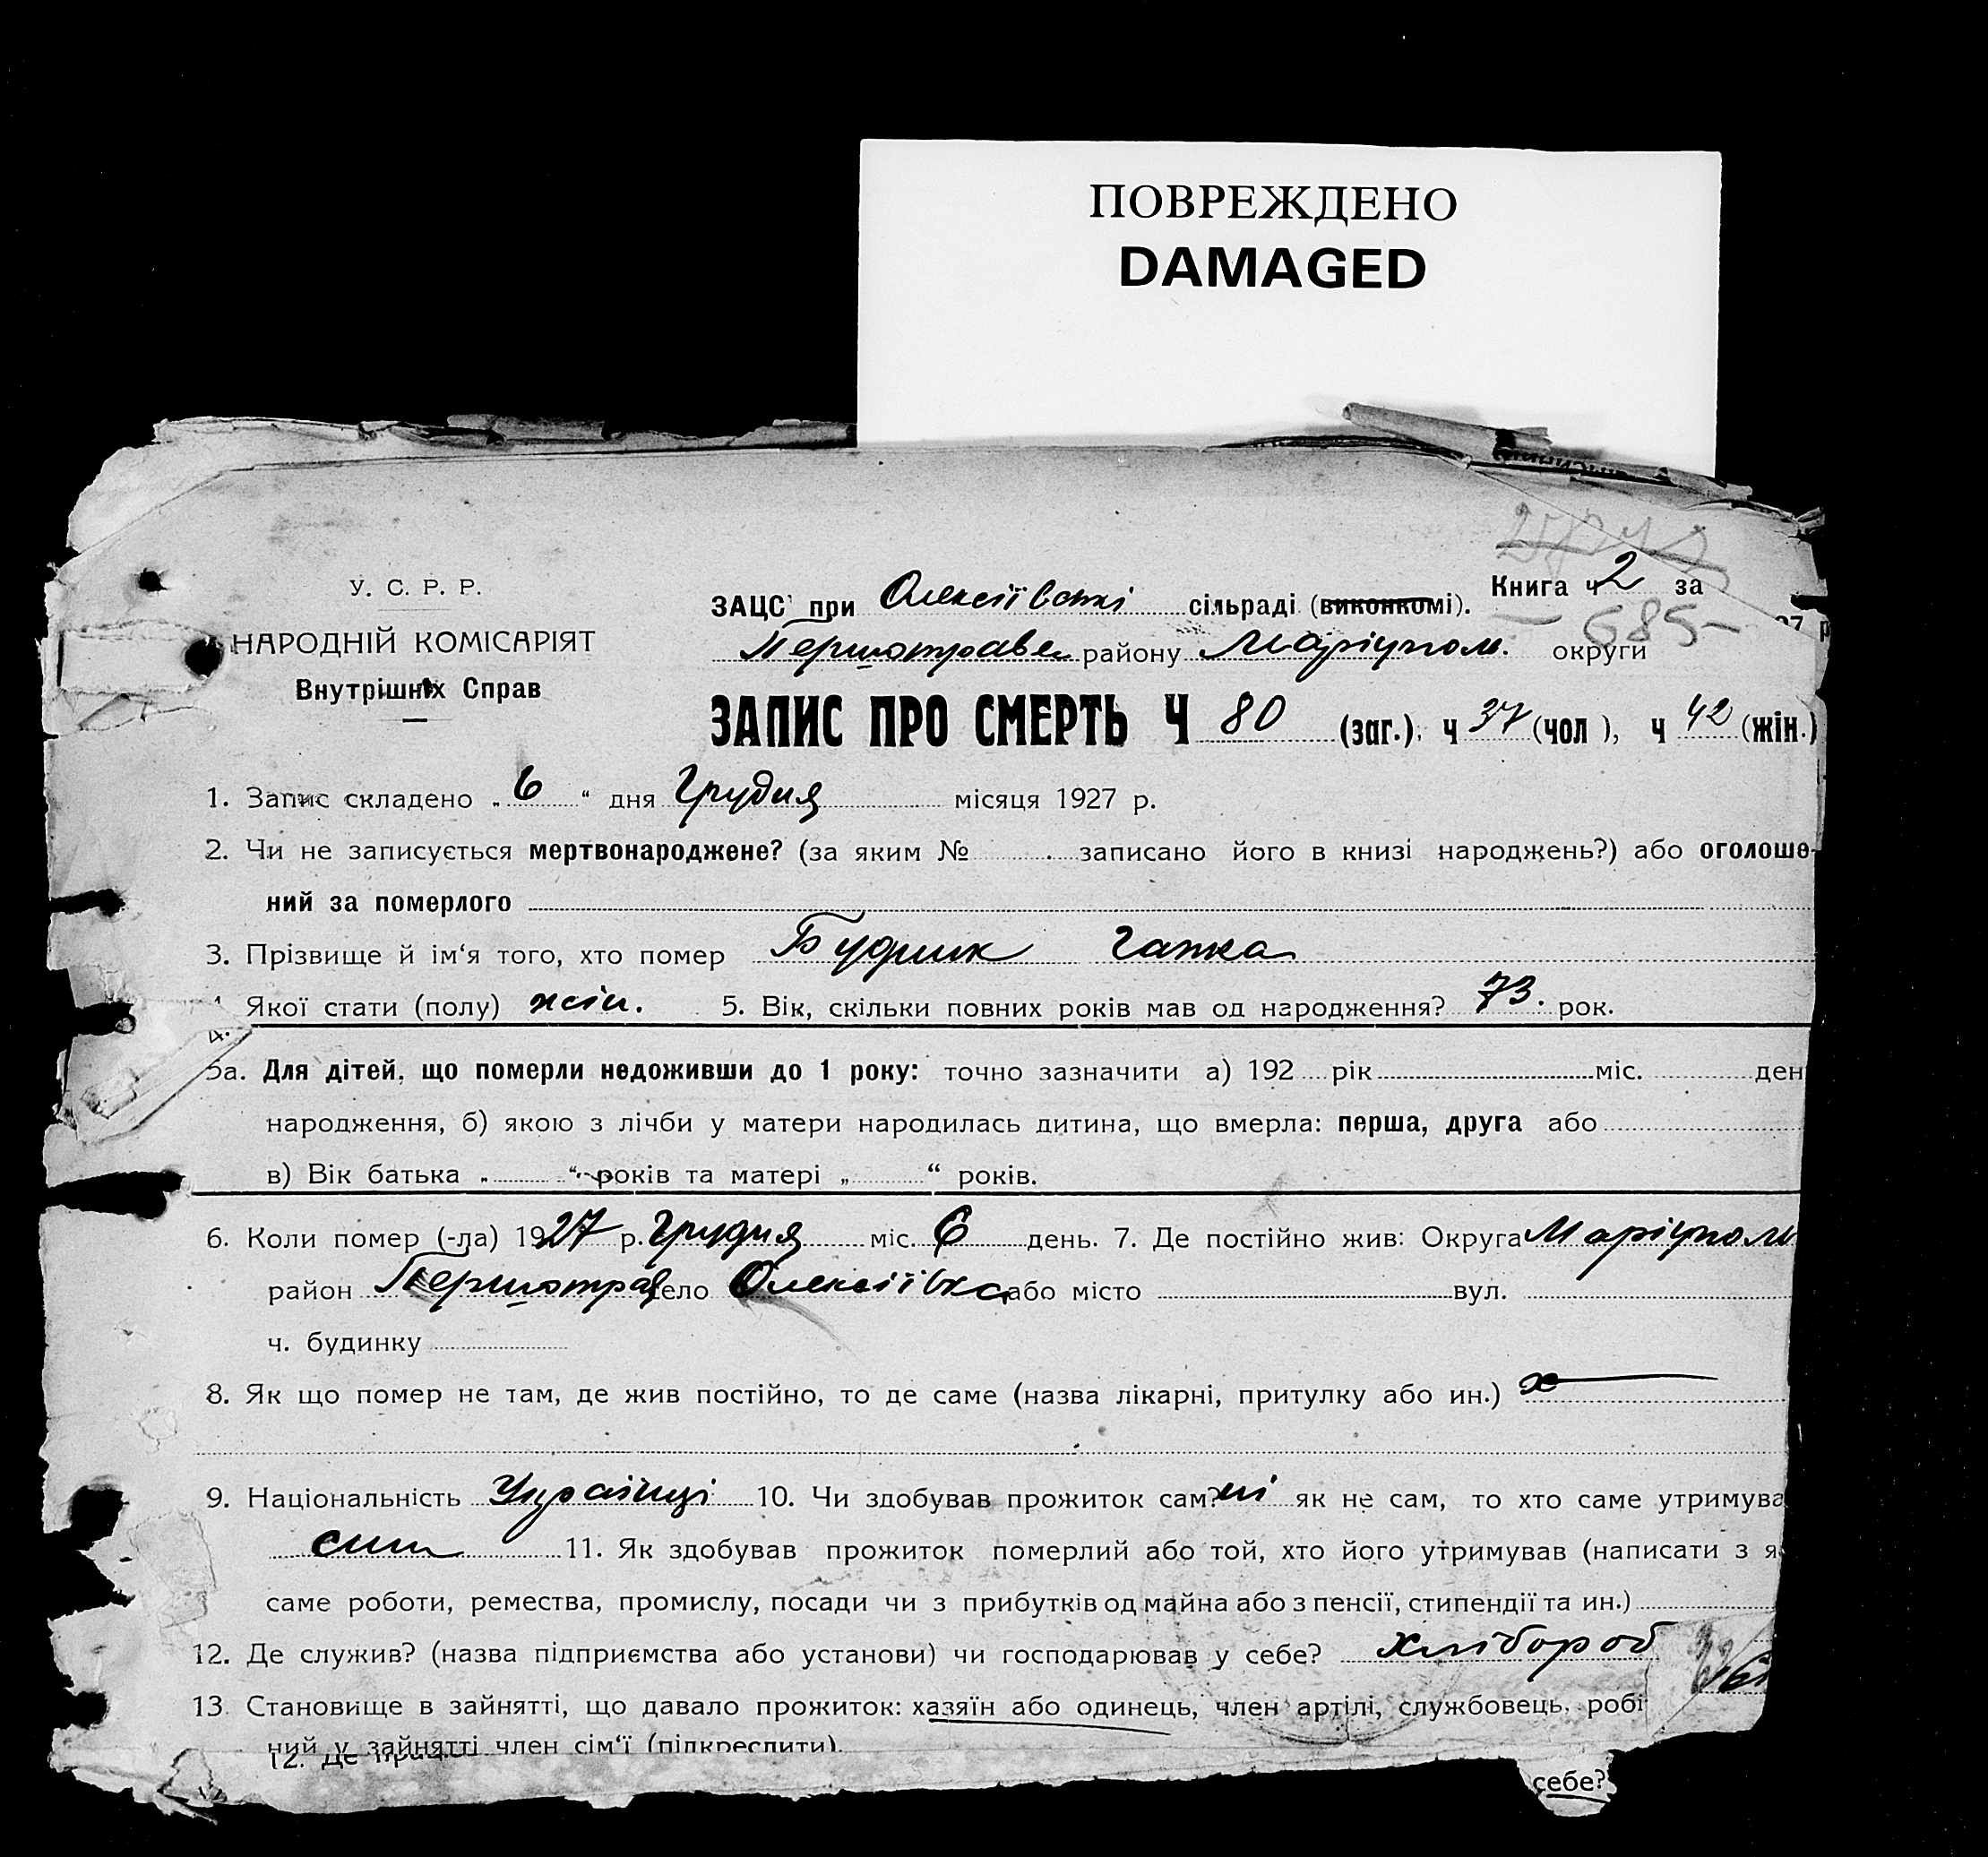 ПОВРЕЖДЕНО
DAMAGED
У. С. Р. Р.
НАРОДНІЙ КОМІСАРІЯТ
Внутрішніх Справ
Книга ч 2 за
685
27 р
ЗАЦС при Олексіївскі сільраді (виконкомі).
Першотравен району Маріупол. округи
ЗАПИС ПРО СМЕРТЬ Ч 80 (заг.), ч 37 (чол ), ч 42 (жін.)
1. Запис складено „ 6 “ дня Грудня місяця 1927 р.
2. Чи не записується мертвонароджене? (за яким № записано його в книзі народжень?) або оголоше-
ний за померлого
3. Прізвище й ім‘я того, хто помер Будник Гапка
4. Якої стати (полу) жін. 5. Вік, скільки повних років мав од народження? 73. рок.
5а. Для дітей, що померли недоживши до 1 року: точно зазначити а) 192 рік міс. ден
народження, б) якою з лічби у матери народилась дитина, що вмерла: перша, друга або
в) Вік батька „ “ років та матері „ “ років.
6. Коли помер (-ла) 1927 р. Грудня міс. 6 день. 7. Де постійно жив: Округа Маріупол
район Першотрав село Олексіївка або місто вул.
ч. будинку
8. Як що помер не там, де жив постійно, то де саме (назва лікарні, притулку або ин.) х
9. Національність Українці 10. Чи здобував прожиток сам? ні як не сам, то хто саме утримува
син 11. Як здобував прожиток померлий або той, хто його утримував (написати з я
саме роботи, ремества, промислу, посади чи з прибутків од майна або з пенсії, стипендії та ин.)
12. Де служив? (назва підприємства або установи) чи господарював у себе? Хлібороб
13. Становище в зайнятті, що давало прожиток: хазяїн або одинець, член артілі, службовець, робі
ний у зайнятті член сім‘ї (підкреслити).
12. Де
себе?